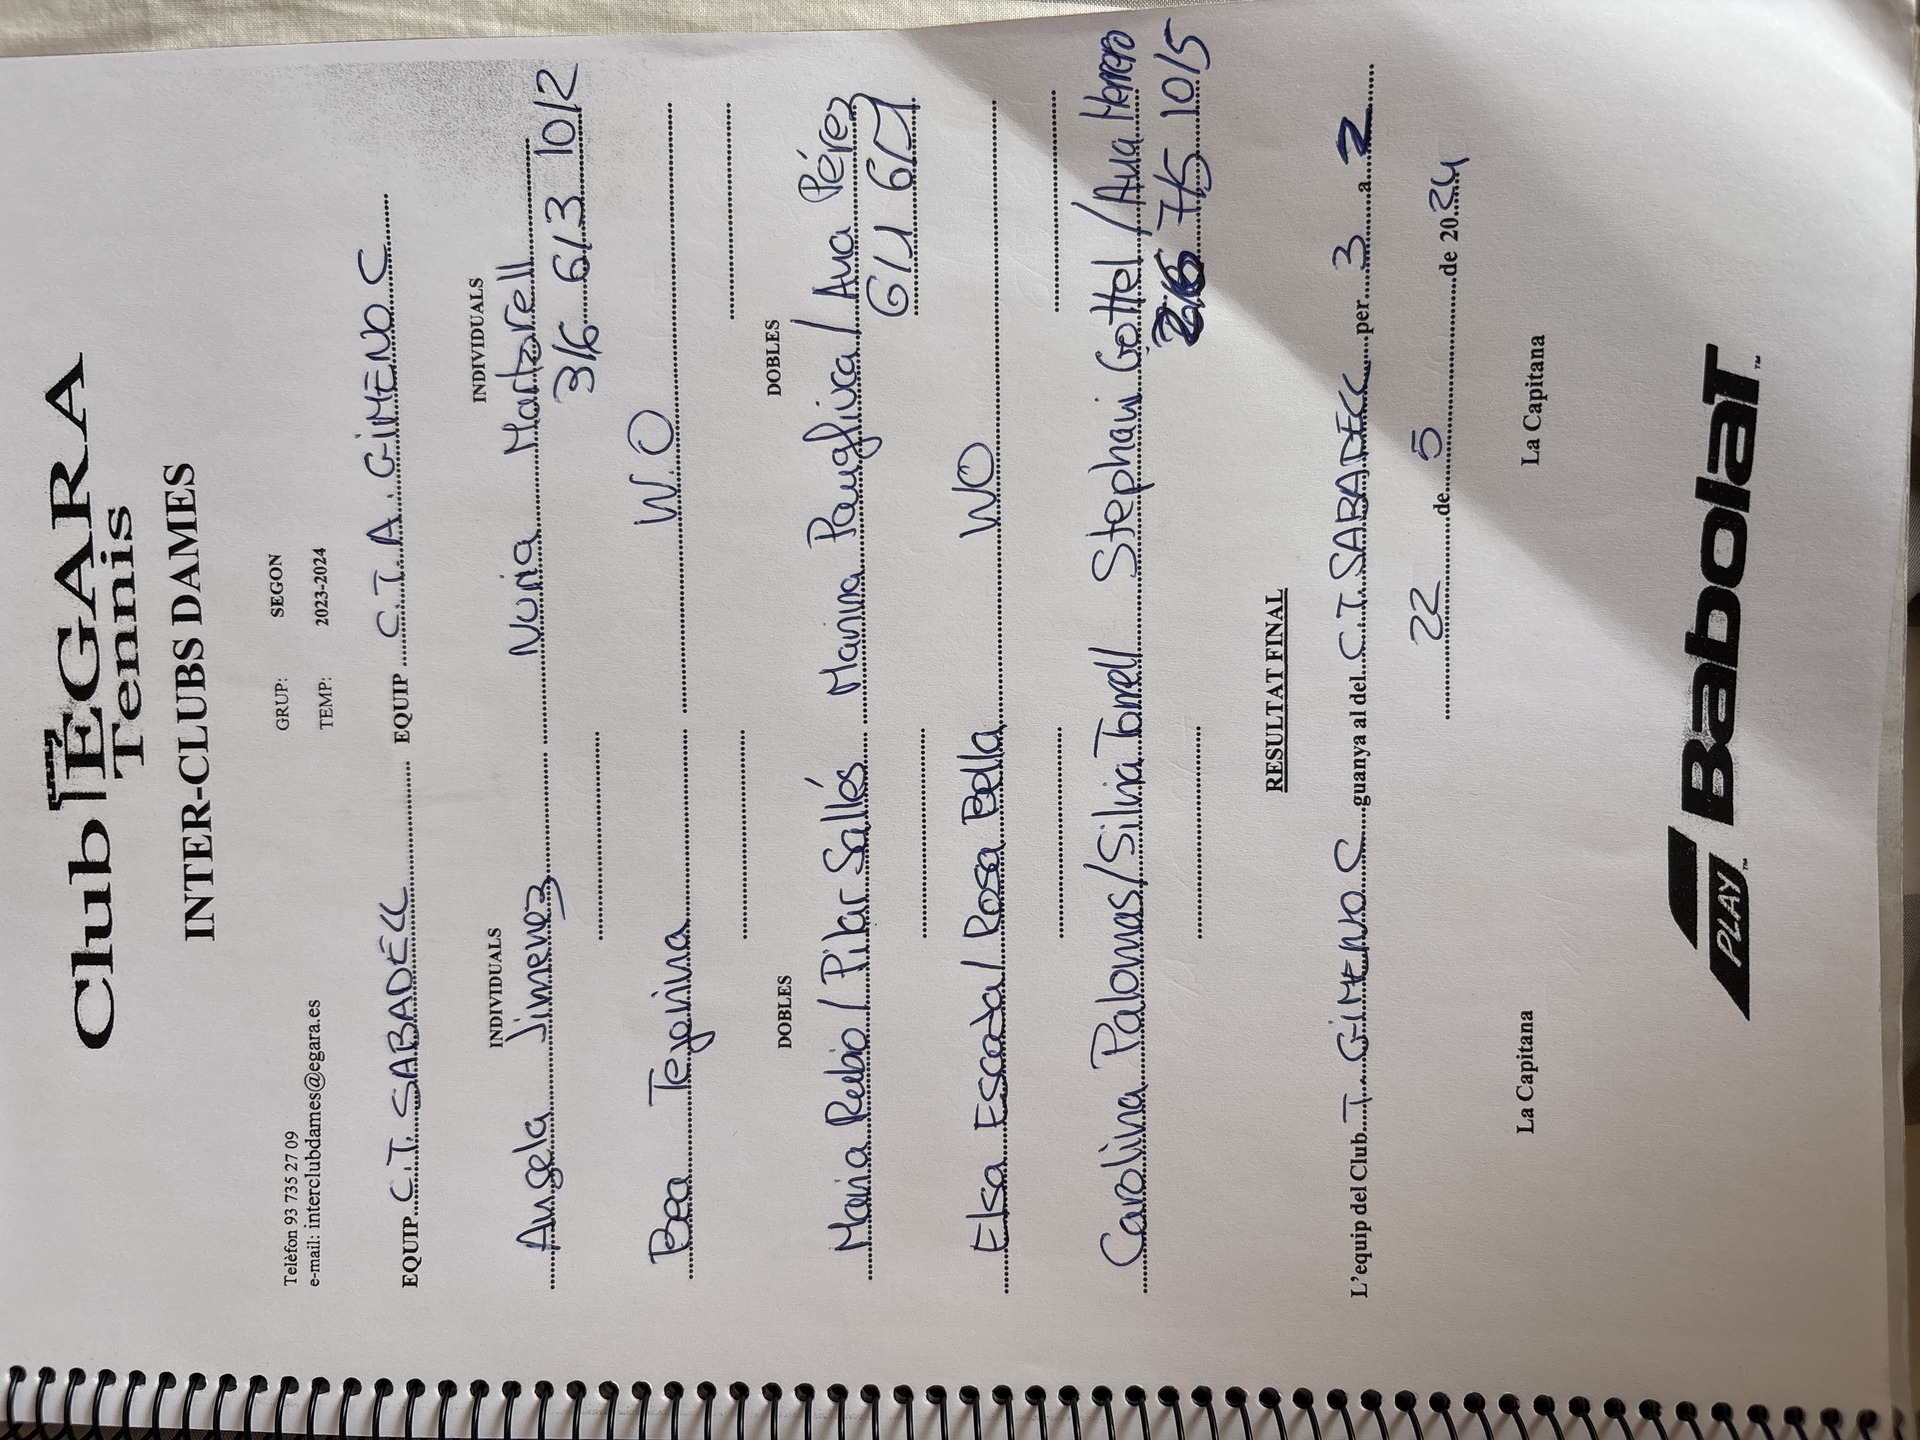 Club EGARA
Tennis
INTER-CLUBS DAMES
Telèfon 93 735 27 09
e-mail: interclubdames@egara.es
GRUP: SEGON
TEMP: 2023-2024
EQUIP C.T. SABADELL EQUIP C.T. A. GIMENO C
INDIVIDUALS INDIVIDUALS
Angela Jimenez Nuria Martorell
3/6 6/3 10/2
Bea Tejerina W.O
DOBLES DOBLES
Maria Rubio / Pilar Sallés Marina / Ana Pérez
6/1 6/1
Elsa Escoda / Rosa Bella WO
Carolina Palomas / Silvia Torrell Stephani Gottel / Ana Herrero
7/5 10/5
RESULTAT FINAL
L'equip del Club T. GIMENO C guanya al del C.T. SABADELL per 3 a 2
22 de 5 de 2024
La Capitana La Capitana
PLAY™ BabolaT™